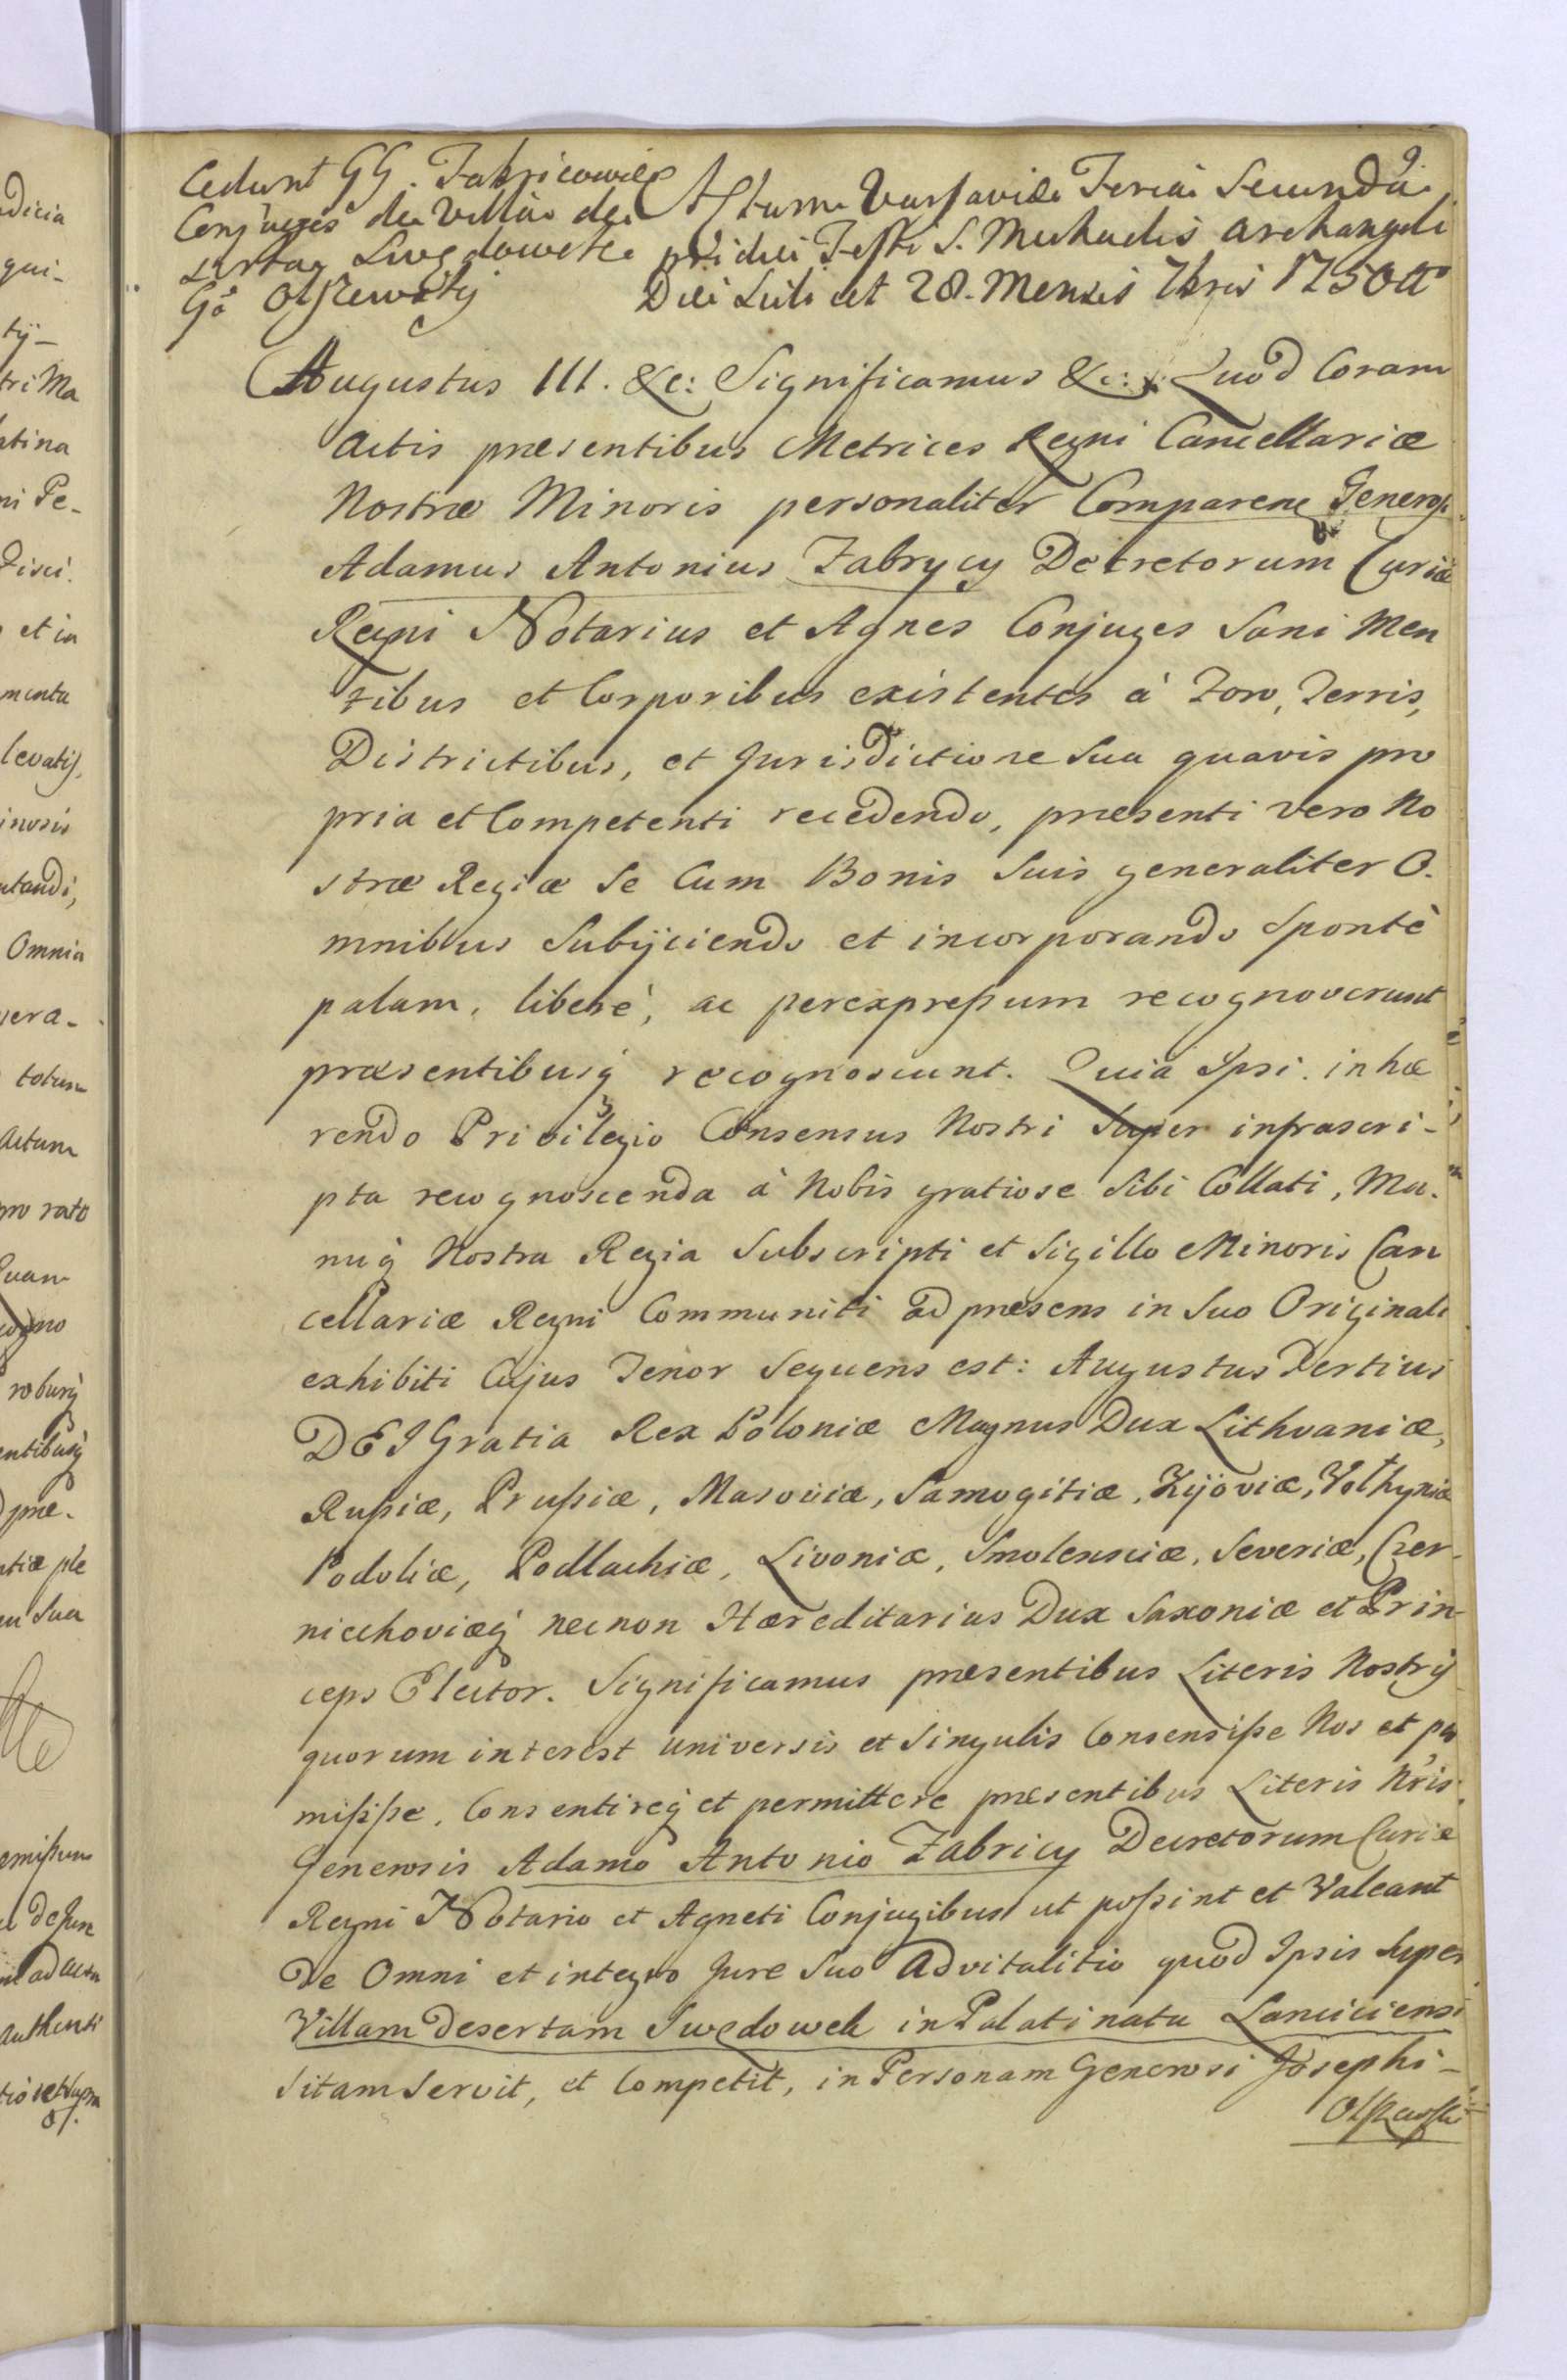 9.
Cedunt GG. Fabricowie
Conjuges de Villa de
serta Swędowek
Go Olszewskij
Actum Varsaviæ Feria Secunda
pridie Festi S. Michaelis Archangeli
Die Scilicet 28. Mensis 7bris 1750 Ao
Augustus III. &c: Significamus &c: Quod Coram
Actis præsentibus Metrices Regni Cancellariæ
Nostræ Minoris personaliter Comparen Generosi
Adamus Antonius Fabrycy Decretorum Curiæ
Regni Notarius et Agnes Conjuges Sani Men
tibus et Corporibus existentes à Foro, Terris,
Districtibus, et Jurisdictione Sua quavis pro
pria et Competenti recedendo, præsenti vero No
stræ Regiæ Se Cum Bonis Suis generaliter O.
mnibus Subijciendo et incorporando Spontè
palam, liberè, ac perexpreßum recognoverunt
præsentibusq recognoscunt. Quia Ipsi inhæ
rendo Privilegio Consensus Nostri Super infrascri-
pta recognoscenda à Nobis gratiose Sibi Collati, Ma.
nuq Nostra Regia Subscripti et Sigillo Minoris Can
cellariæ Regni Communiti ad præsens in Suo Originali
exhibiti Cujus Tenor Sequens est: Augustus Tertius
DEI Gratia Rex Poloniæ Magnus Dux Lithvaniæ,
Rußiæ, Prußiæ, Masoviæ, Samogitiæ, Kijoviæ, Volhyniæ
Podoliæ, Podlachiæ, Livoniæ, Smolensciæ, Severiæ, Czer-
niechoviæq necnon Hæreditarius Dux Saxoniæ et Prin-
ceps Elector. Significamus præsentibus Literis Nostrij
quorum interest universis et Singulis Consensiße Nos et per
misiße, Consentireq et permittere præsentibus Literis Nris
Generosis Adamo Antonio Fabricy Decretorum Curiæ
Regni Notario et Agneti Conjugibus ut poßint et Valeant
De Omni et integro Jure Suo Advitalitio quod Ipsis Super
Villam Desertam Swędowek in Palatinatu Lanciciensi
Sitam Servit, et Competit, in Personam Generosi Josephi-
Olszewski